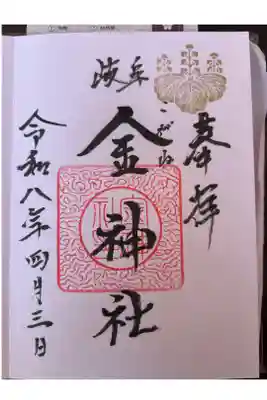 奉拝
岐阜
こがね
金神社
令和八年四月三日